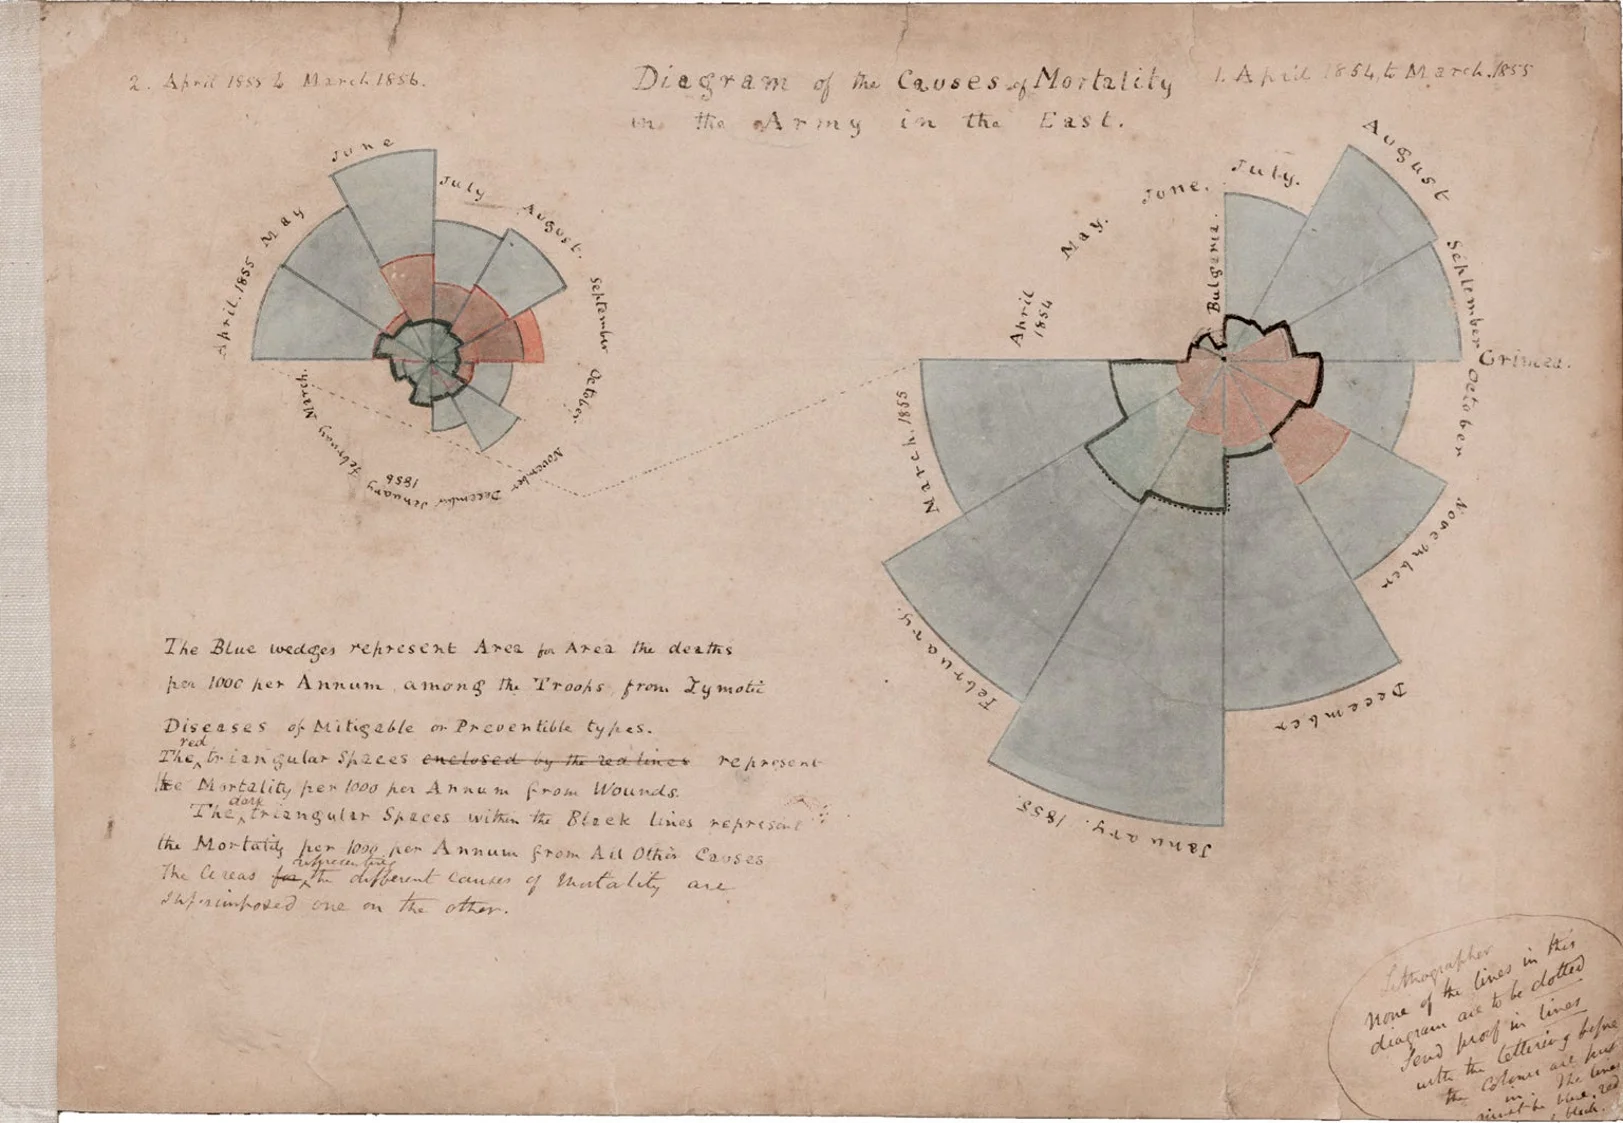 2. April 1855 to March 1856.
Diagram of the Causes of Mortality
in the Army in the East.
1. April 1854 to March 1855
June
July
August.
September
October.
November
December
January
1856
February
March.
April. 1855
May
April
1854
May.
June.
July.
Bulgaria.
August
September
Crimea.
October
November
December
January. 1855.
February.
March. 1855
The Blue wedges represent Area for Area the deaths
per 1000 per Annum, among the Troops, from Zymotic
Diseases of Mitigable or Preventible types.
red
The ‸ triangular Spaces enclosed by the red lines represent
the Mortality per 1000 per Annum from Wounds.
dark
The ‸ triangular Spaces within the Black lines represent
the Mortality per 1000 per Annum from All Other Causes
representing
The Areas for ‸ the different Causes of Mortality are
superimposed one on the other.
Lithographer
None of the lines in this
diagram are to be dotted
Send proof in lines
with the lettering before
the Colours are put
in. The lines
must be blue, red
& black.